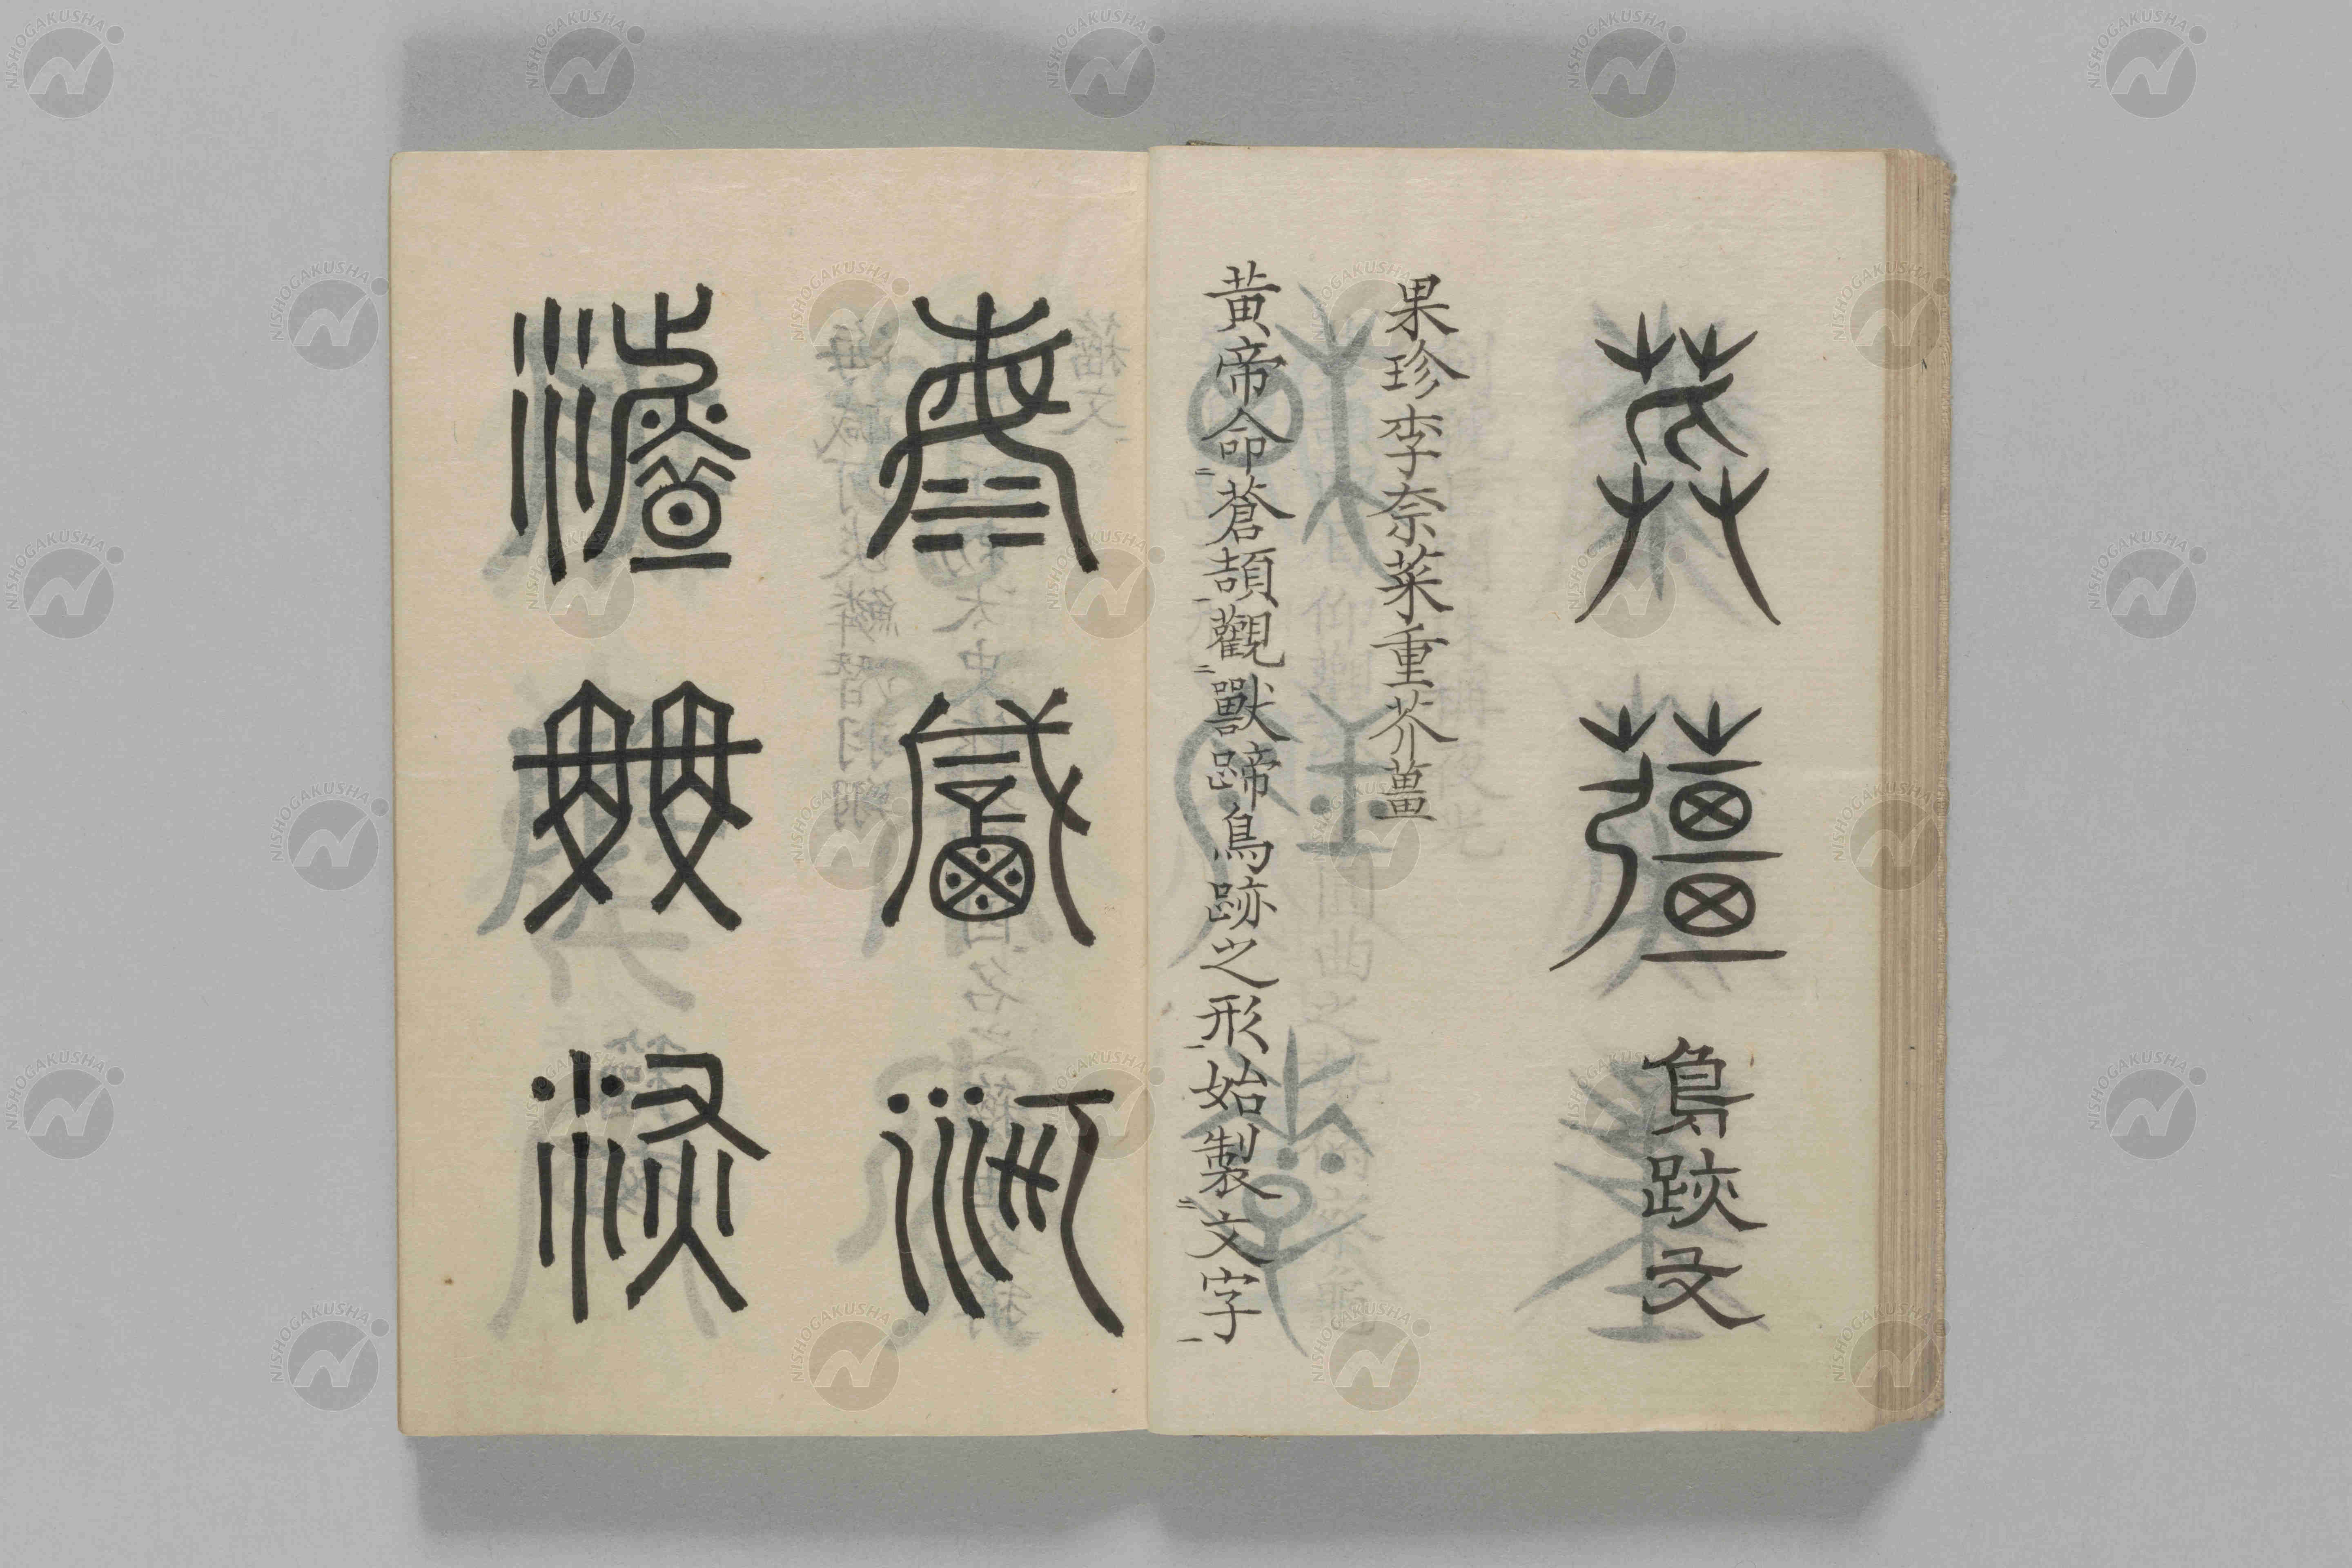 芥薑鳥跡文
果珍李奈菜重芥薑
黃帝命蒼頡觀獸蹄鳥跡之形始製文字
海鹹河
NISHOGAKUSHA